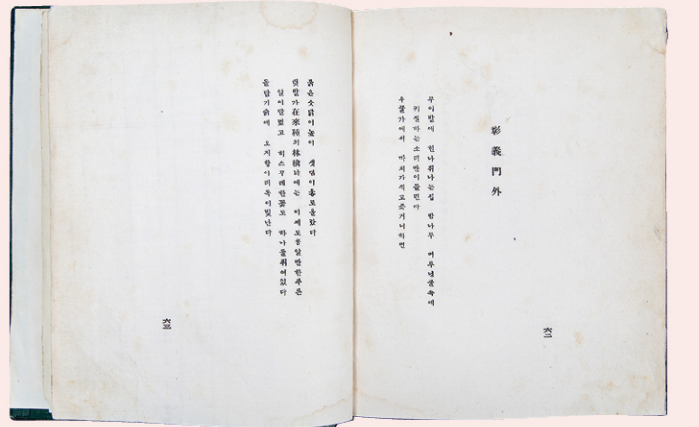 彰義門外
무이밭에 흰나뷔나는집 밤나무 머루넝쿨속에
키질하는소리만이들린다
우물가에서 까치가작고즞거니하면
六二
붉은숫닭이높이 샛덤이웋로올랐다
텃밭가在來種의林檎나무에는 이제도콩알만한푸른
알이달렸고 히스무레한꽃도 하나둘퓌여있다
돌담기슭에 오지항아리독이빛난다
六三